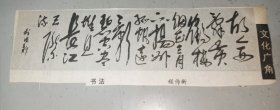 故人西
辞黄鹤楼
烟花三月
下扬州
孤帆远
影
碧空尽
唯见
长江
天际
流
书法
文化广角